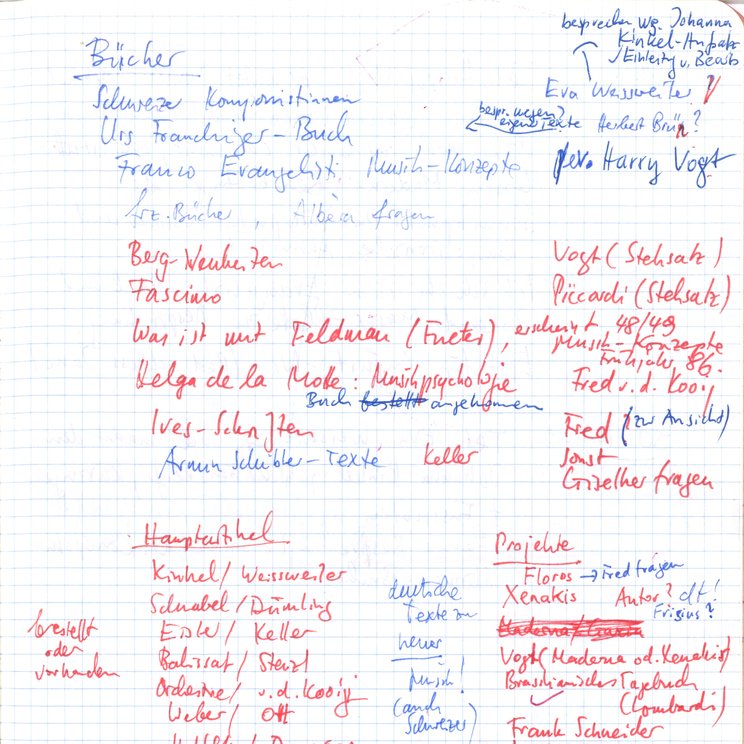 Bücher
Schweizer Komponistinnen
Urs Frauchiger-Buch
Franco Evangelisti, Musik-Konzepte
frz. Bücher, Albèra fragen
besprechen wg. Johanna
Kinkel-Aufsatz
Einleitg u. Bearb
Eva Weissweiler?
bespr. wegen?
eigene Texte Herbert Brün?
rev. Harry Vogt
Berg-Neuheiten Vogt (Stehsatz)
Fascismo Piccardi (Stehsatz)
Was ist mit Feldman (Fueter), erscheint 48/49
Musik-Konzepte
Frühjahr 86.
Helga de la Motte: Musikpsychologie Fred v. d. Kooij
Buch bestellt angekommen
Ives-Schriften Fred (zur Ansicht)
Armin Schibler-Texte Keller sonst
Giselher fragen
Hauptartikel
Kinkel/Weissweiler
Schnabel/Dümling
Eisler/Keller
Balissat/Stenzl
Orchestrie/v.d.Kooij
Weber/Ott
bestellt
oder
vorhanden
deutsche
Texte zu
neuer
Musik!
(auch
Schweizer)
Projekte
Floros → Fred fragen
Xenakis Autor? dt!
Frisius?
Maderna
Vogt (Maderna od. Xenakis)
Brasilianisches Tagebuch
(Lombardi)
Frank Schneider